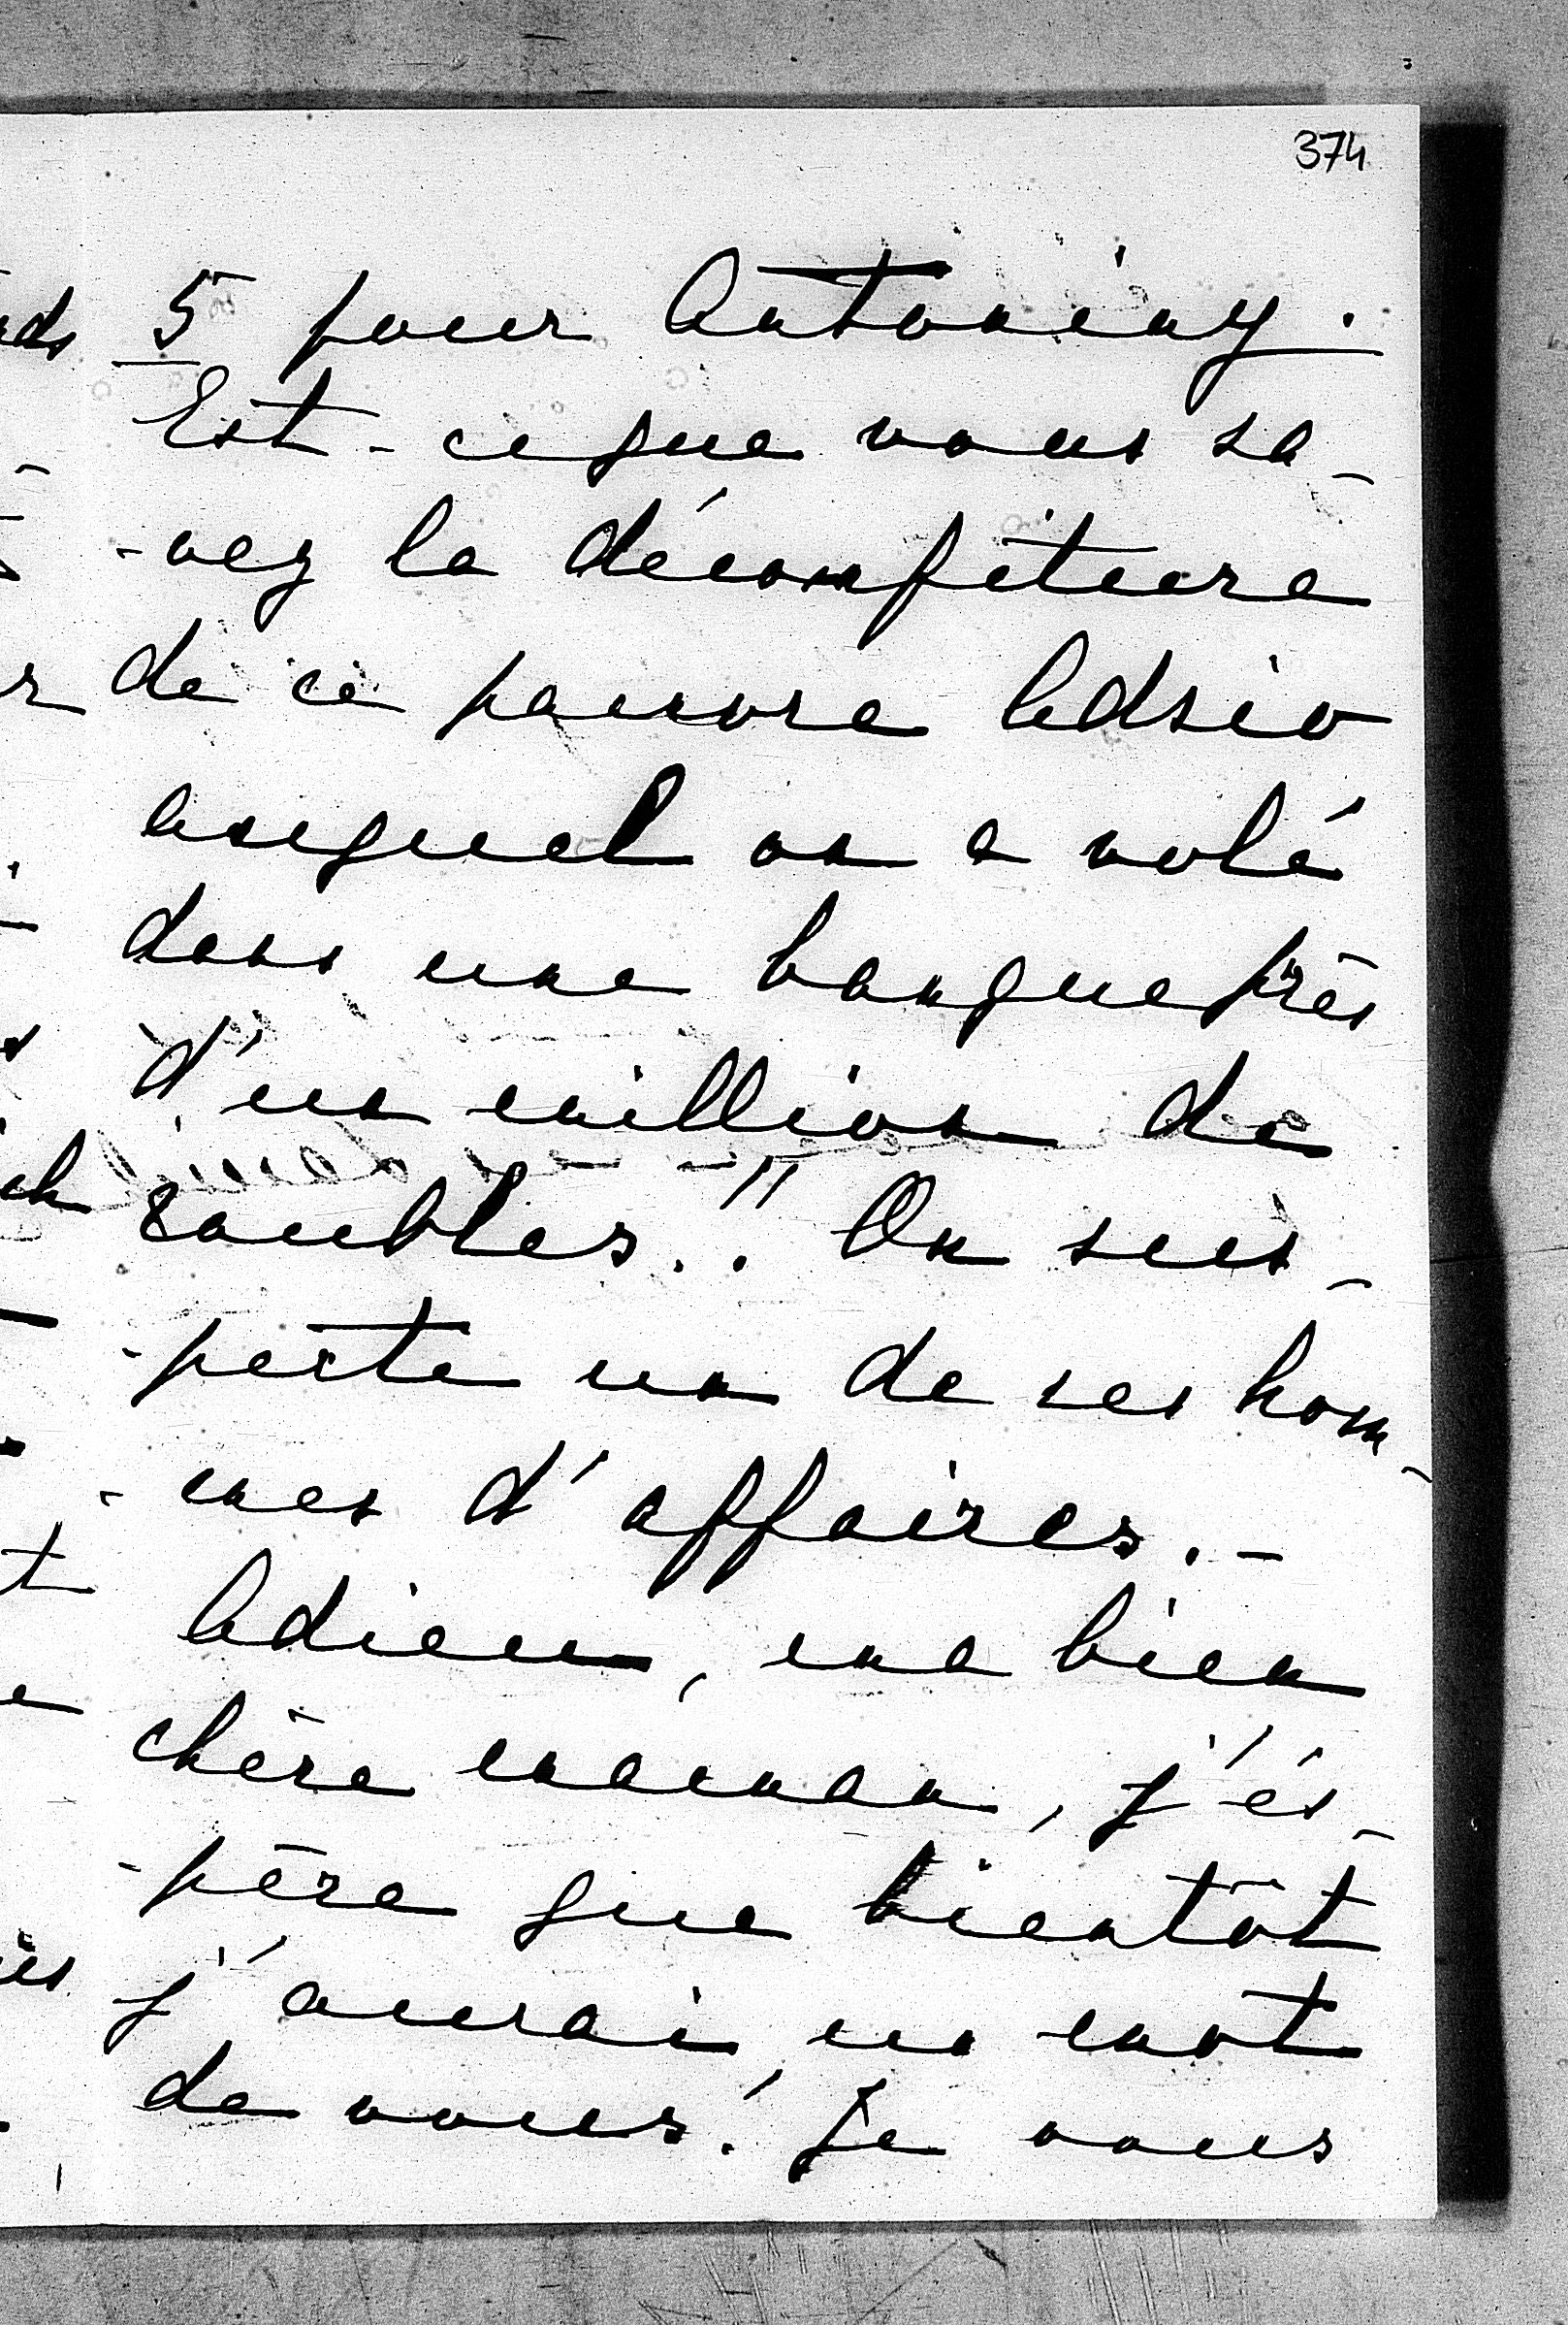 374
5 pour Antoniny.
Est-ce que vous sa-
-vez la décompiture
de ce pauvre Adsio
auquel on a volé
dans une banque près
d'un million de
roubles.!! On sus-
-pecte un de ses hom-
-mes d'affaires. -
Adieu, ma bien
chère maman, j'és-
-père que bientôt
j'aurai un mot
de vous! Je vous